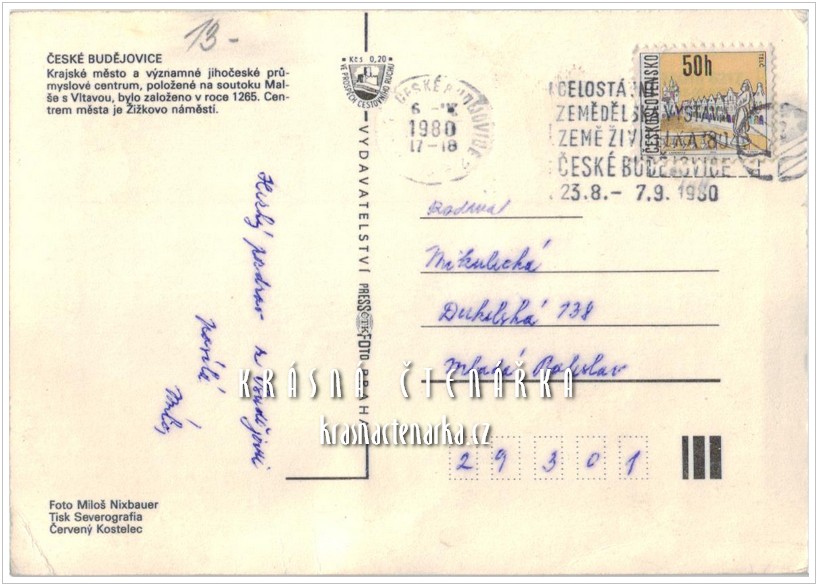 13-
ČESKÉ BUDĚJOVICE
Krajské město a významné jihočeské prů-
myslové centrum, položené na soutoku Mal-
še s Vltavou, bylo založeno v roce 1265. Cen-
trem města je Žižkovo náměstí.
Kčs 0,20
VE PROSPĚCH CESTOVNÍHO RUCHU
ČESKÉ BUDĚJOVICE
1980
17-18
CELOSTÁTNÍ
ZEMĚDĚLSKÁ VÝSTAVA
ZEMĚ ŽIVITELKA 80
ČESKÉ BUDĚJOVICE
23.8.- 7.9. 1980
50h
ČESKOSLOVENSKO
TELČ
VYDAVATELSTVÍ PRESSFOTO PRAHA
ČTK
pozdrav z Budějovic
posílá
Mikulecká
Dukelská 138
Mladá Boleslav
29301
KRÁSNÁ ČTENÁŘKA
krasnactenarka.cz
Foto Miloš Nixbauer
Tisk Severografia
Červený Kostelec